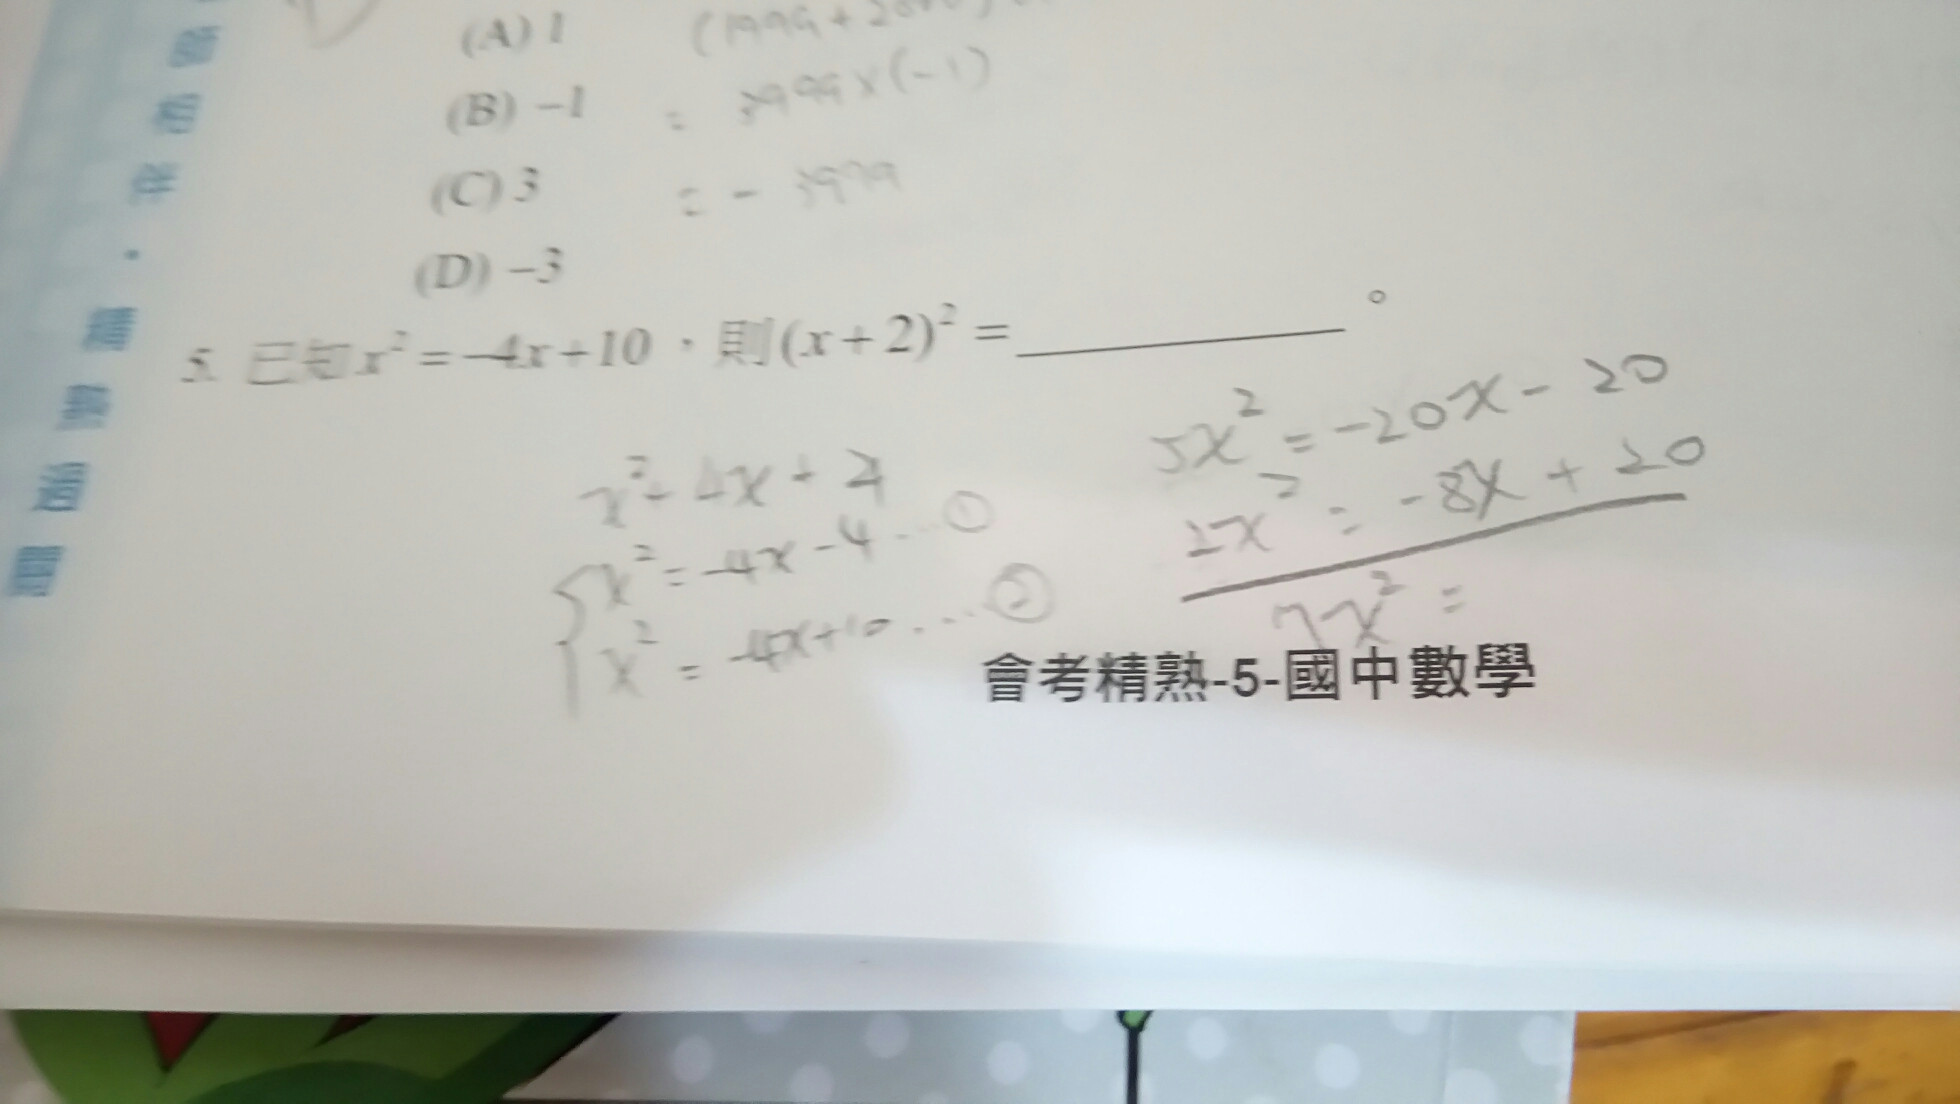 師相伴・精熟過關
(A) 1
(B) −1
= 3999×(-1)
(C) 3
= - 3999
(D) −3
5. 已知x²=−4x+10，則(x+2)²=＿＿＿＿＿＿。
x²+4x+4
x²=-4x-4...①
x²=-4x+10...②
5x²=-20x-20
2x²=-8x+20
7x²=
會考精熟-5-國中數學